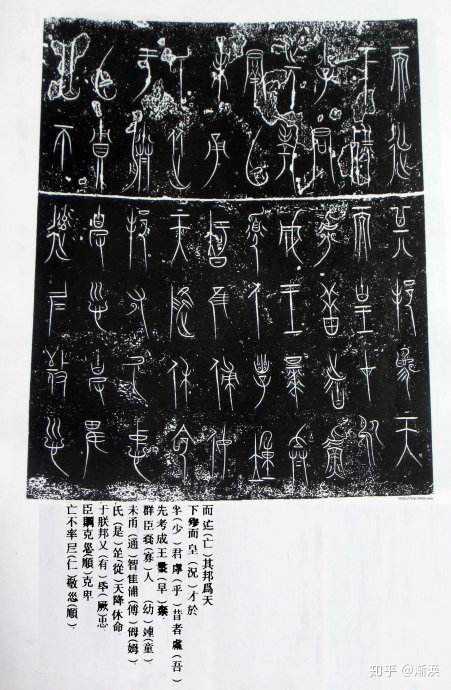 而㠯(亡)其邦爲天
下殍而皇(況)才於
(少)君虖(乎)昔者䖒(吾)
先考成王(早)棄
群臣寡(寡)人 幼(童)
未甬(通)智隹俌(傅)侮(姆)
氏(是)從(從)天降休命
于朕邦又(有)氒(厥)忠
臣賙克㥧(順)克卑
亡不率𡰥(仁)敬㥧(順)
知乎 @渐渶